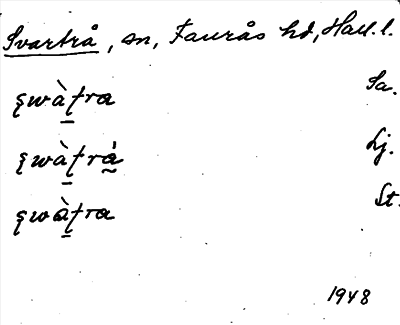 Svartrå, sn, Faurås hd, Hall. l.
swàt̠ra Sa.
swàt̠rà̰ Lj.
swàt̠ra St.
1948